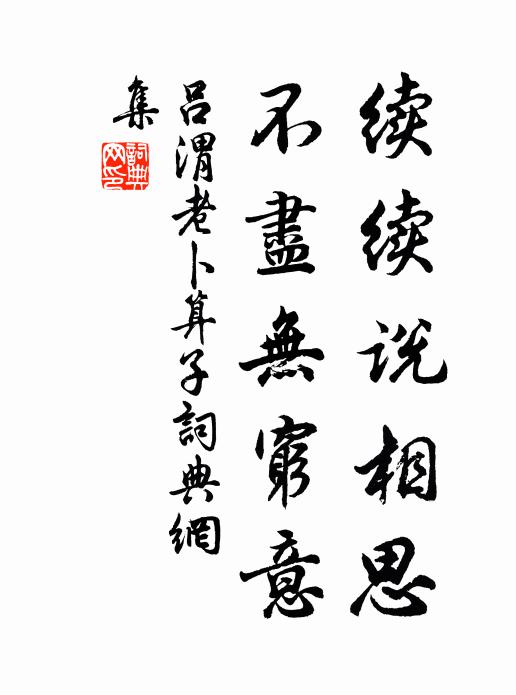 续续说相思
不盡無窮意
吕渭老卜算子詞典網
集
詞典網印